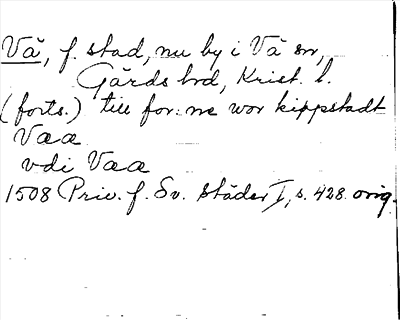 Vä, f. stad, nu by i Vä sn,
Gärds hrd, Krist. l.
(forts.) till for:ne wor kippstadt
Vaa
vdi Vaa
1508 Priv. f. Sv. städer I, s. 428 orig.